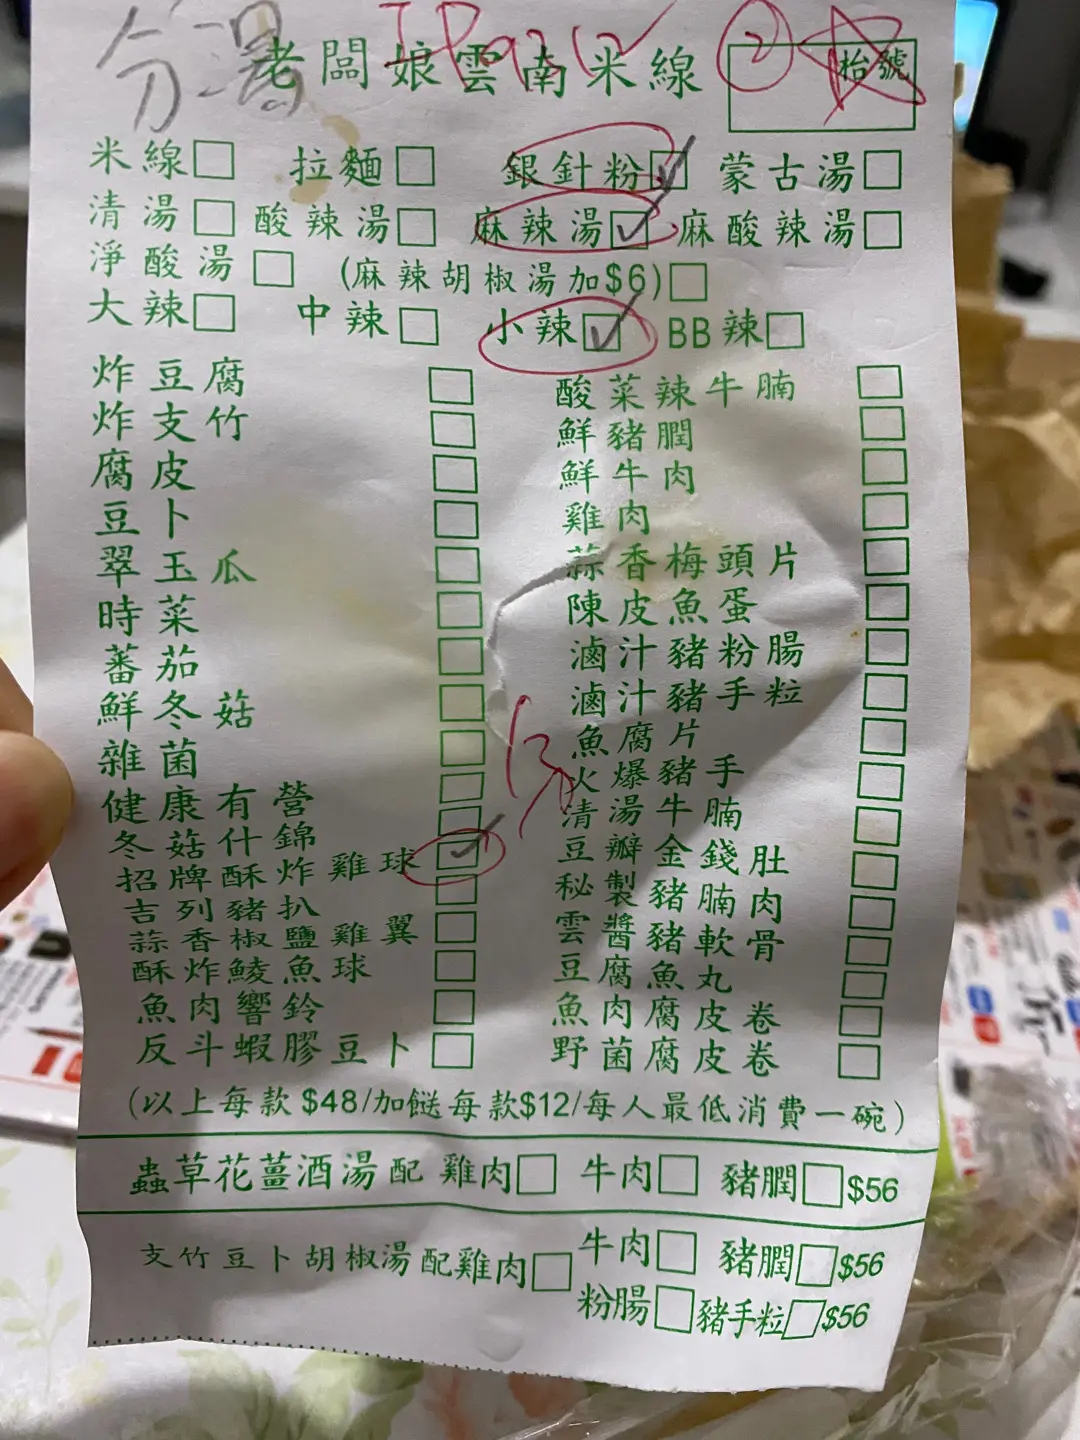 分湯
老闆娘雲南米線 ② 枱號
米線□ 拉麵□ 銀針粉☑ 蒙古湯□
清湯□ 酸辣湯□ 麻辣湯☑ 麻酸辣湯□
淨酸湯□ (麻辣胡椒湯加$6)□
大辣□ 中辣□ 小辣☑ BB辣□
炸豆腐□ 酸菜辣牛腩□
炸支竹□ 鮮豬膶□
腐皮□ 鮮牛肉□
豆卜□ 雞肉□
翠玉瓜□ 蒜香梅頭片□
時菜□ 陳皮魚蛋□
蕃茄□ 滷汁豬粉腸□
鮮冬菇□ 滷汁豬手粒□
雜菌□ 魚腐片□
健康有營□ 火爆豬手□
冬菇什錦□ 清湯牛腩□
招牌酥炸雞球☑ 豆瓣金錢肚□
吉列豬扒□ 秘製豬腩肉□
蒜香椒鹽雞翼□ 雲醬豬軟骨□
酥炸鯪魚球□ 豆腐魚丸□
魚肉響鈴□ 魚肉腐皮卷□
反斗蝦膠豆卜□ 野菌腐皮卷□
(以上每款$48/加餸每款$12/每人最低消費一碗)
蟲草花薑酒湯配 雞肉□ 牛肉□ 豬膶□$56
支竹豆卜胡椒湯配雞肉□ 牛肉□ 豬膶□$56
粉腸□ 豬手粒□$56